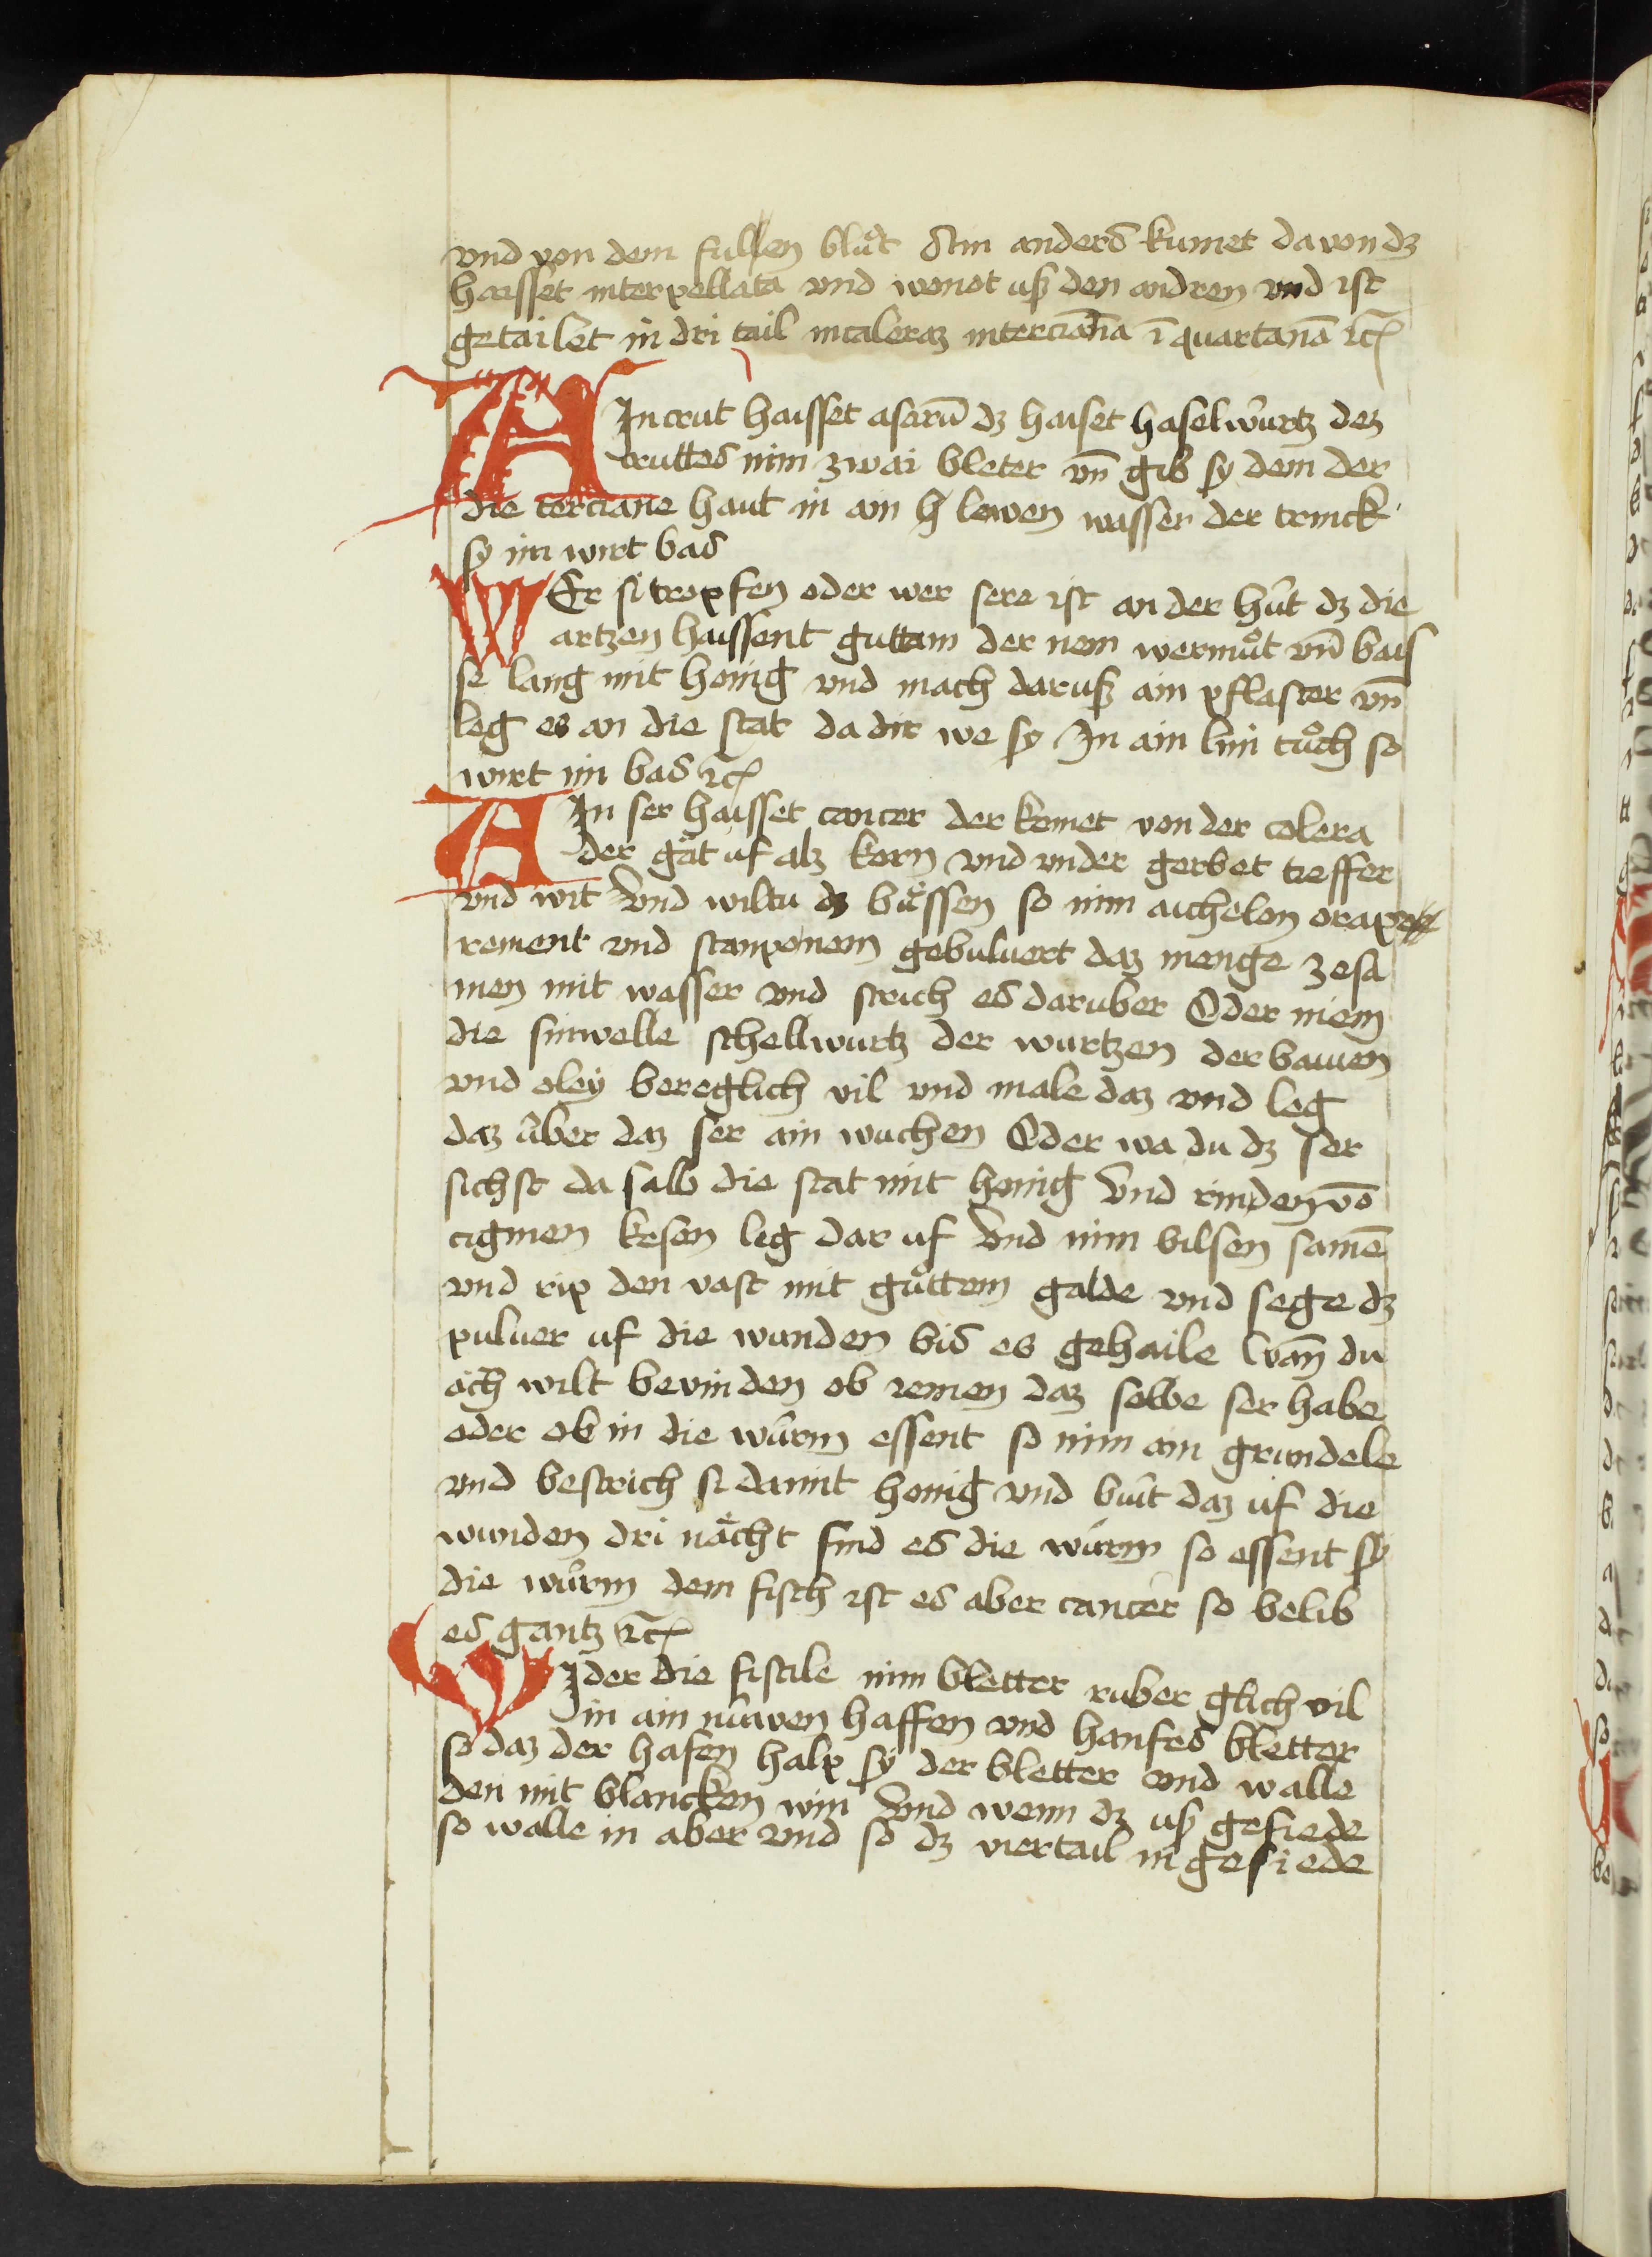 vnd von dem fullen bluͦt Ain anders kumet da von dz
haisset interpellata vnd wonot uß den andren vnd ist
getailet in dri tail in caleraz interciana ī quartanā ꝛc
AIn crut haisset asarū dz haiset haselwurtz dez
cruttes nim zwai bleter vn̄ gib sy dem der
die terciane haut in ain h lewen wasser der trinck
sy im wirt bas
WEr si tropfen oder wer sere ist an der hut dz die
artzen haissent guttam der nem wermuͦt vn̄ bais
se lang mit honig vnd mach daruß ain pflaster vn̄
leg es an die stat da dir we sy In ain lini tuͦch so
wirt im bas ꝛc
AIn ser haisset cancer der komet von der colera
der gat uf alz korn vnd vnder gerbet tieffer
vnd wit Vnd wiltu dz buͤssen so nim aichelen orape
rement vnd stanponem gebuluert daz menge zesa
men mit wasser vnd strich es daruber Oder niem
die sinwelle schellwurtz der wurtzen der bawen
vnd oley bereglich vil vnd male daz vnd leg
daz uber daz ser ain wuchen Oder wa du dz ser
sichst da salb die stat mit honig Vnd rinden vō
cigmen kesen leg dar uf Vnd nim bilsen samē
vnd rip den vast mit guͦttem galde vnd sege dz
puluer uf die wunden bis es gehaile Wan̄ du
och wilt bevinden ob iemen daz selbe ser habe
oder ob in die wurm essent so nim ain grundele
vnd bestrich si damit honig vnd buit daz uf die
wunden dri nächt sind es die wurm so essent sy
die wurm dem fisch ist es aber cancer so belib
es gantz ꝛc
WIder die fistile nim bletter ruber glich vil
in ain nuwen haffen vnd hanfes bletter
so daz der hafen halp sy der bletter vnd walle
den mit blancken win Vnd wenn dz uß gesiede
so walle in aber vnd so dz viertail in gesiede